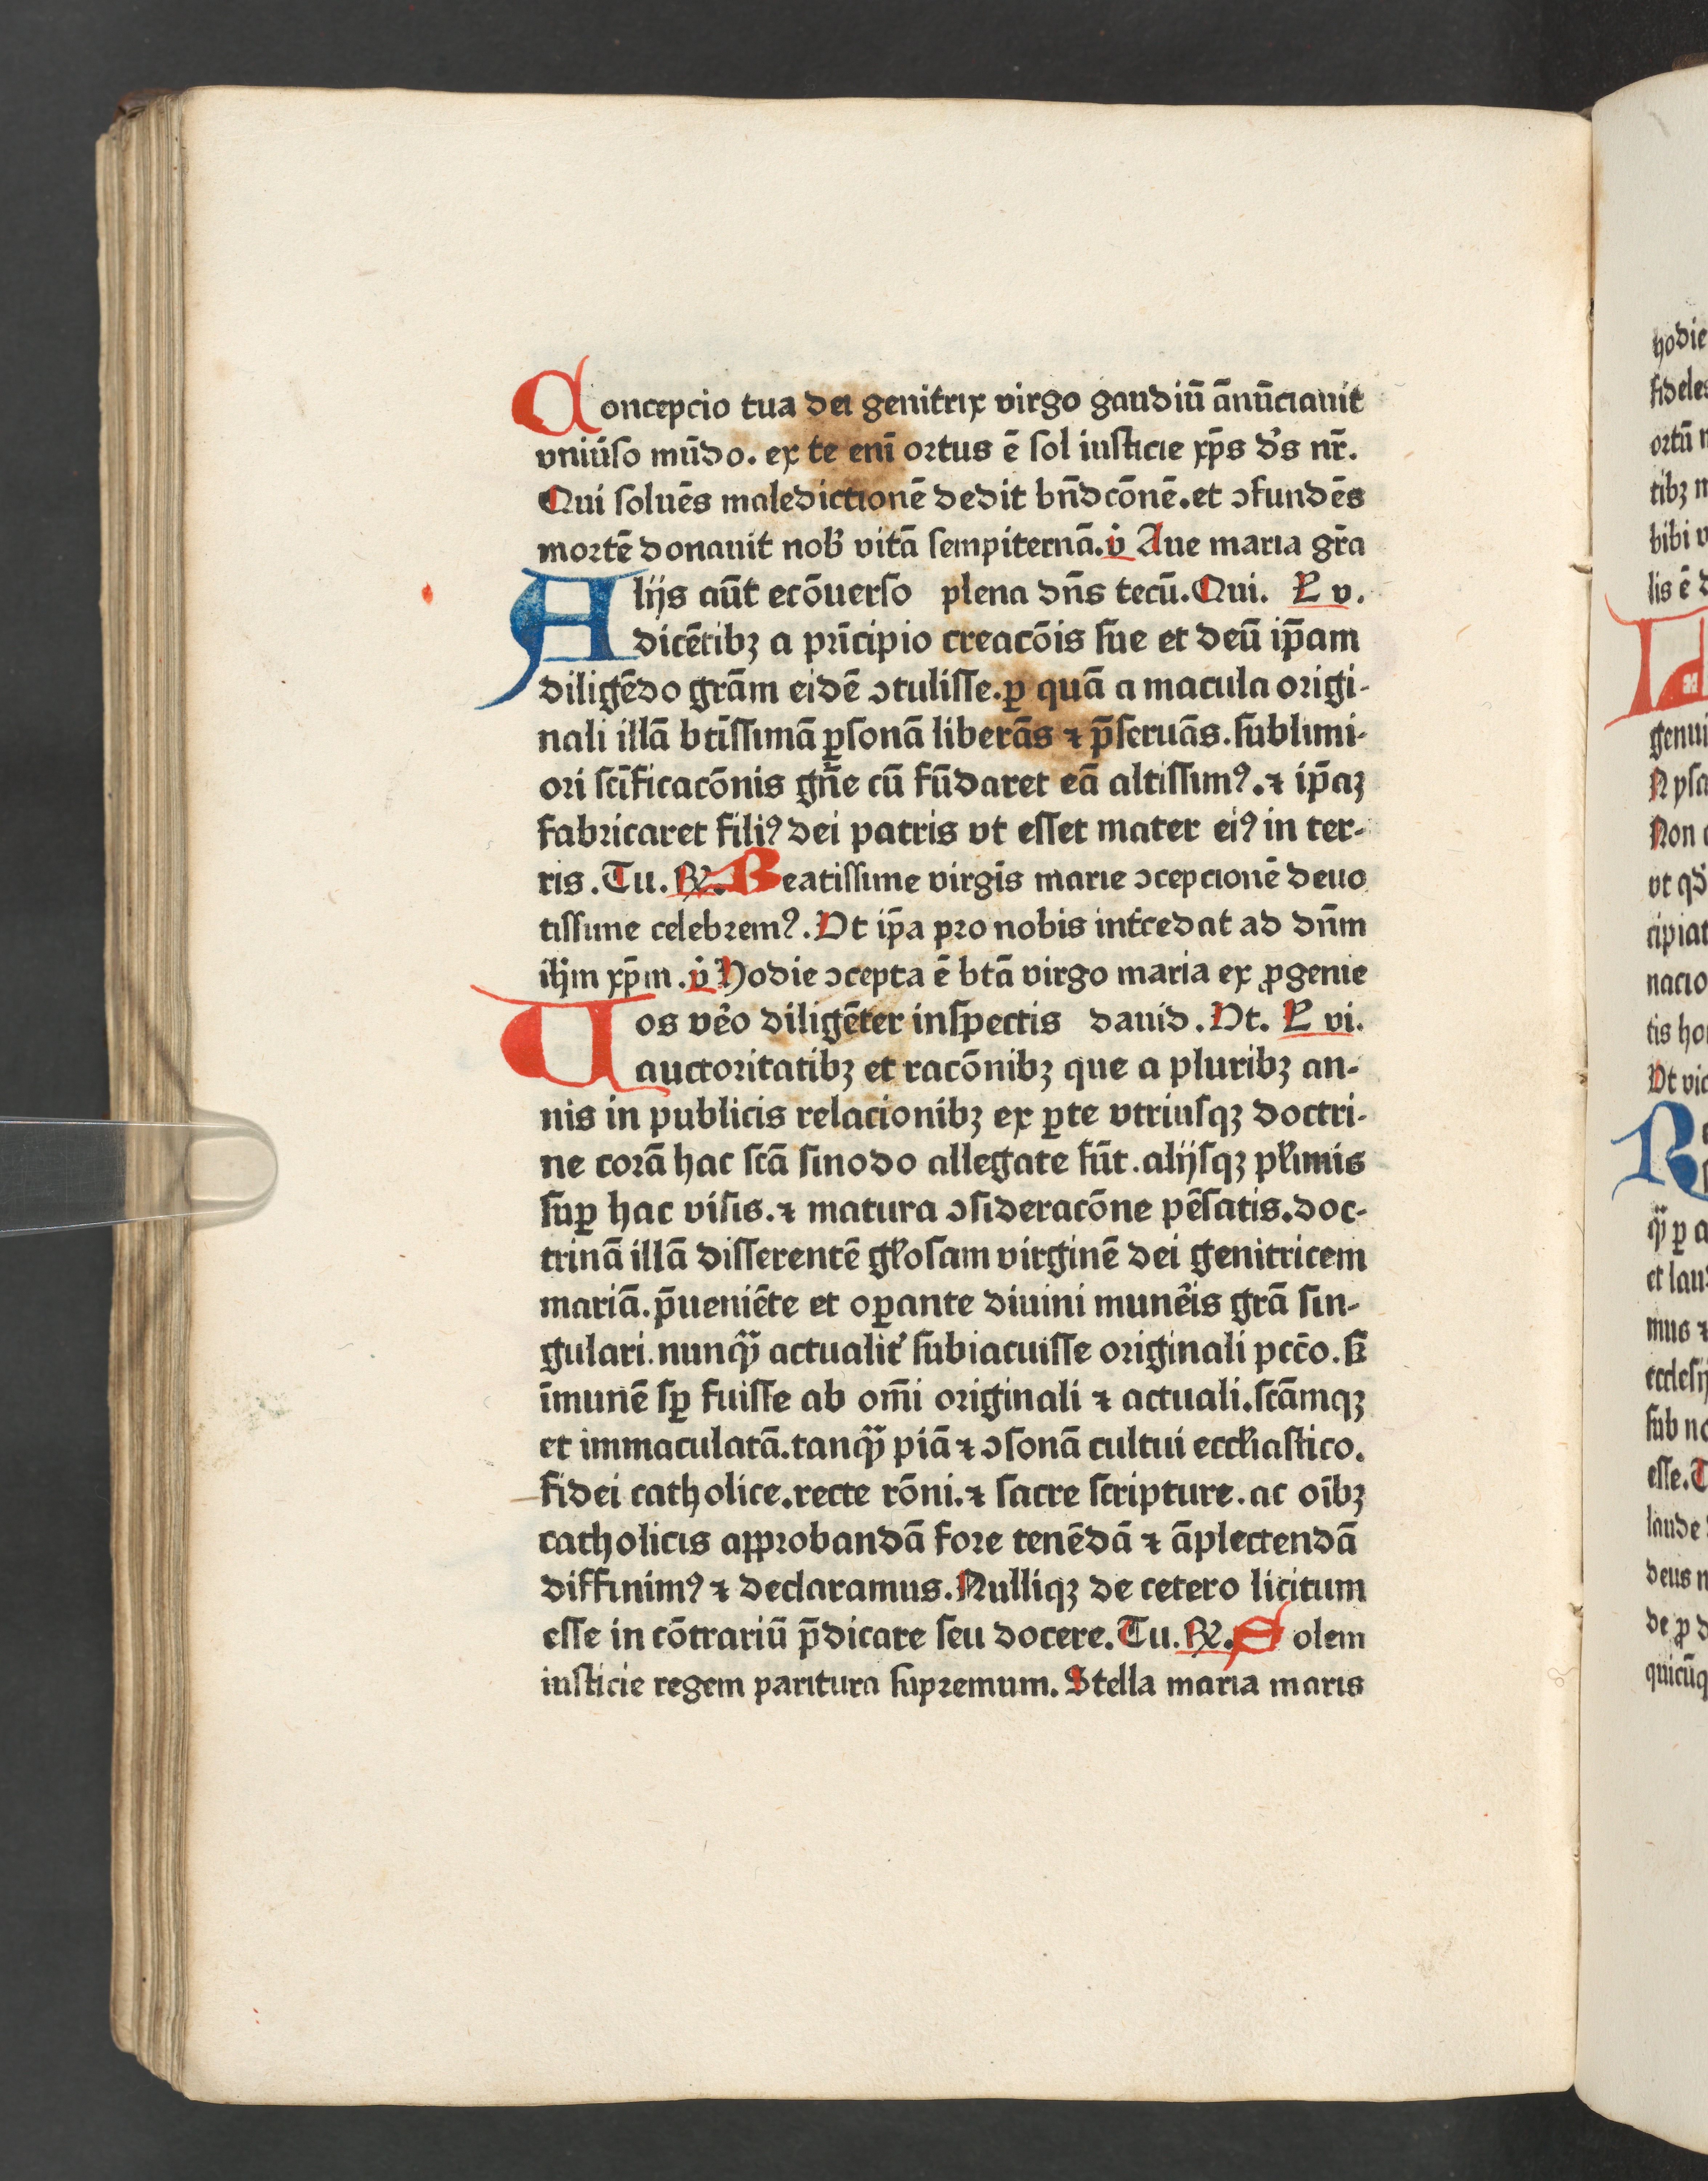 Concepcio tua dei genitrix virgo gaudiū ānūciauit
vniūſo mūdo. ex te enī ortus ē ſol iuſticie xp̄s d̓s nr̄.
Qui ſoluēs maledictionē dedit bn̄dcōnē. et ↄfundēs
mortē donauit nob̓ vitā ſempiternā. v̓ Aue maria gr̄a
Alijs aūt ecōuerſo plena dn̄s tecū. Qui. L v.
dicētibꝫ a prīcipio creacōis ſue et deū ip̄am
diligēdo grām eidē ↄtuliſſe. ꝑ quā a macula origi-
nali illā btīſſimā ꝑſonā liberās ⁊ p̄ſeruās. ſublimi-
ori ſcīficacōnis gn̄e cū fūdaret eā altiſſimꝰ. ⁊ ip̄aꝫ
fabricaret filiꝰ dei patris vt eſſet mater eiꝰ in ter-
ris. Tu. ꝶ. Beatiſſime virgīs marie ↄcepcionē deuo
tiſſime celebremꝰ. Vt ip̄a pro nobis int̓cedat ad dn̄m
ih̄m xp̄m. v̓ Hodie ↄcepta ē btā virgo maria ex ꝓgenie
Uos v̓o diligēter inſpectis dauid. Vt. L vi.
auctoritatibꝫ et racōnibꝫ que a pluribꝫ an-
nis in publicis relacionibꝫ ex ꝑte vtriuſqꝫ doctri-
ne corā hac ſcā ſinodo allegate ſūt. alijſqꝫ pl̓imis
ſuꝑ hac viſis. ⁊ matura ↄſideracōne pēſatis. doc-
trinā illā diſſerentē gl̓oſam virginē dei genitricem
mariā. p̄ueniēte et oꝑante diuini mun̓is grā ſin-
gulari. nunqȝ̈ actualit̓ ſubiacuiſſe originali pcc̄o. ſꝫ
īmunē ſꝑ fuiſſe ab om̄i originali ⁊ actuali. ſcāmqꝫ
et immaculatā. tanqȝ̈ piā ⁊ ↄſonā cultui eccl̓iaſtico.
fidei catholice. recte rōni. ⁊ ſacre ſcripture. ac oībꝫ
catholicis approbandā fore tenēdā ⁊ āplectendā
diffinimꝰ ⁊ declaramus. Nulliqꝫ de cetero licitum
eſſe in cōtrariū p̄dicare ſeu docere. Tu. ꝶ. Solem
iuſticie regem paritura ſupremum. Stella maria maris